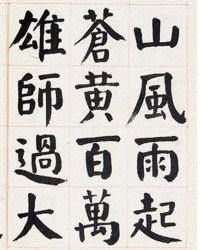 山風雨起
蒼黄百萬
雄師過大